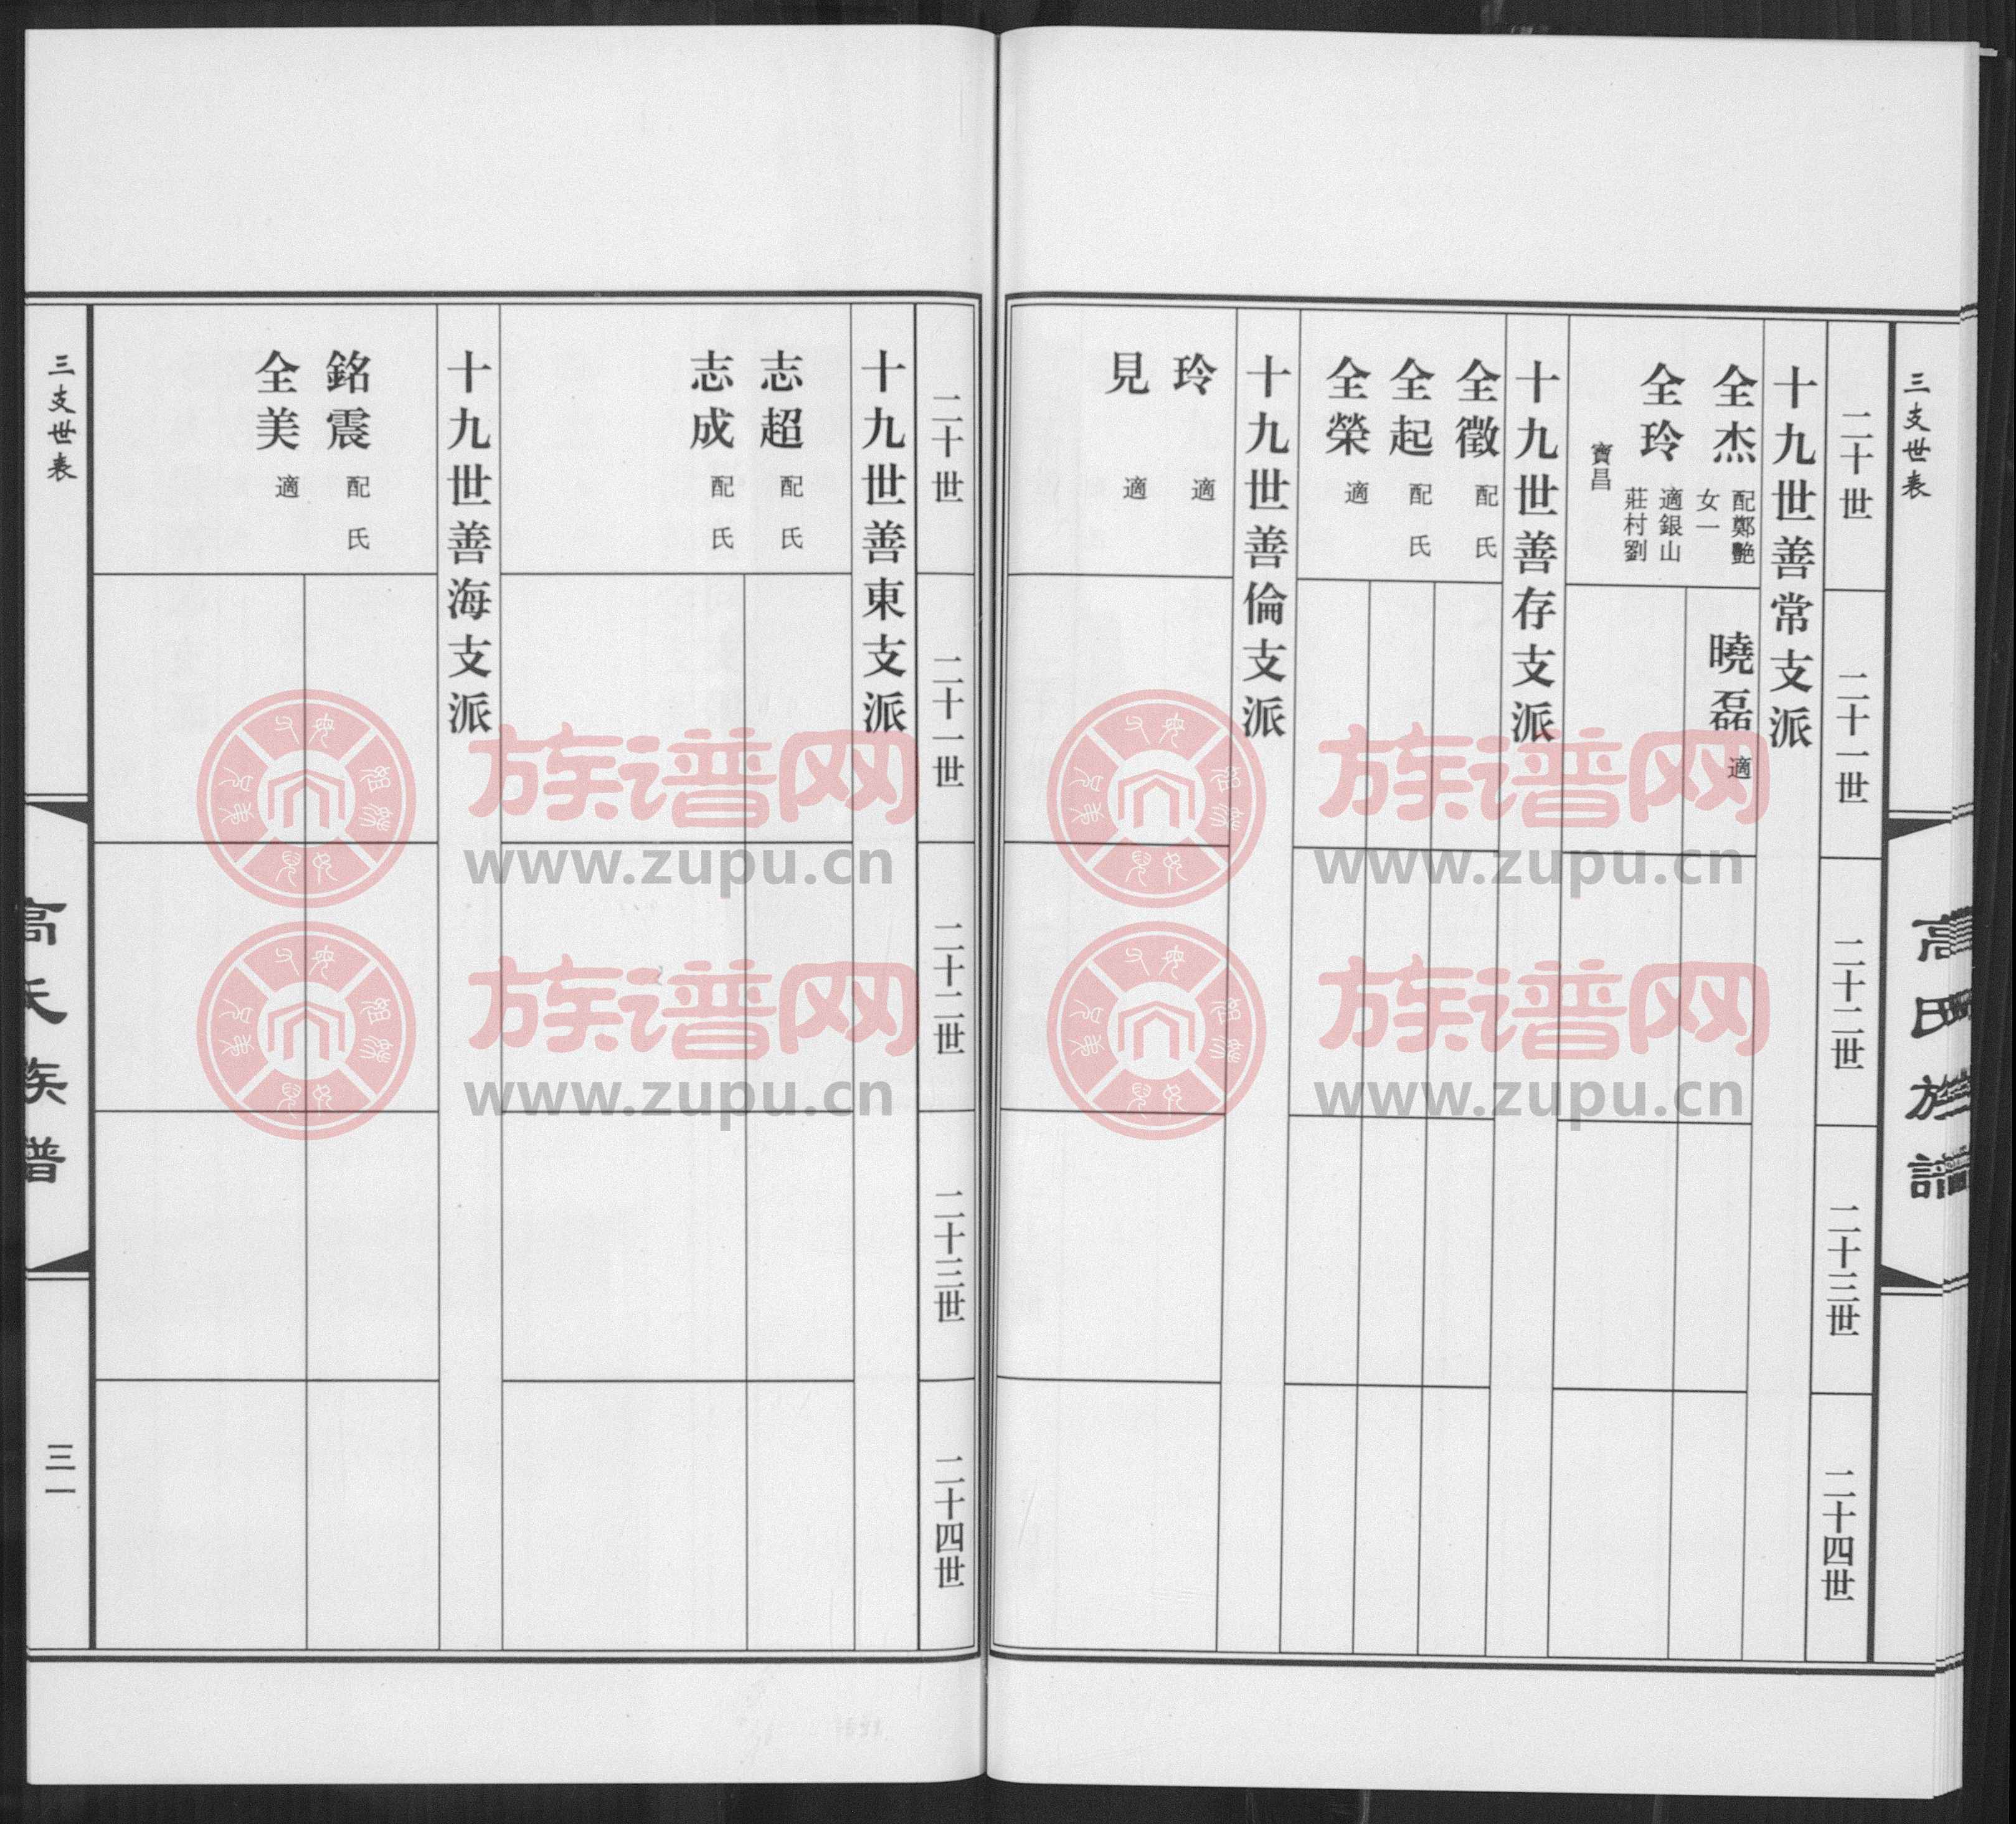 三支世表
高氏族譜
二十世
二十一世
二十二世
二十三世
二十四世
十九世善常支派
全杰
配鄭艷
女一
曉磊
適
全玲
適銀山
莊村劉
寶昌
十九世善存支派
全徵
配 氏
全起
配 氏
全榮
適
十九世善倫支派
玲
適
見
適
二十世
二十一世
二十二世
二十三世
二十四世
十九世善東支派
志超
配 氏
志成
配 氏
十九世善海支派
銘震
配 氏
全美
適
三支世表
高氏族譜
三一
族谱网
www.zupu.cn
族谱网
www.zupu.cn
族谱网
www.zupu.cn
族谱网
www.zupu.cn